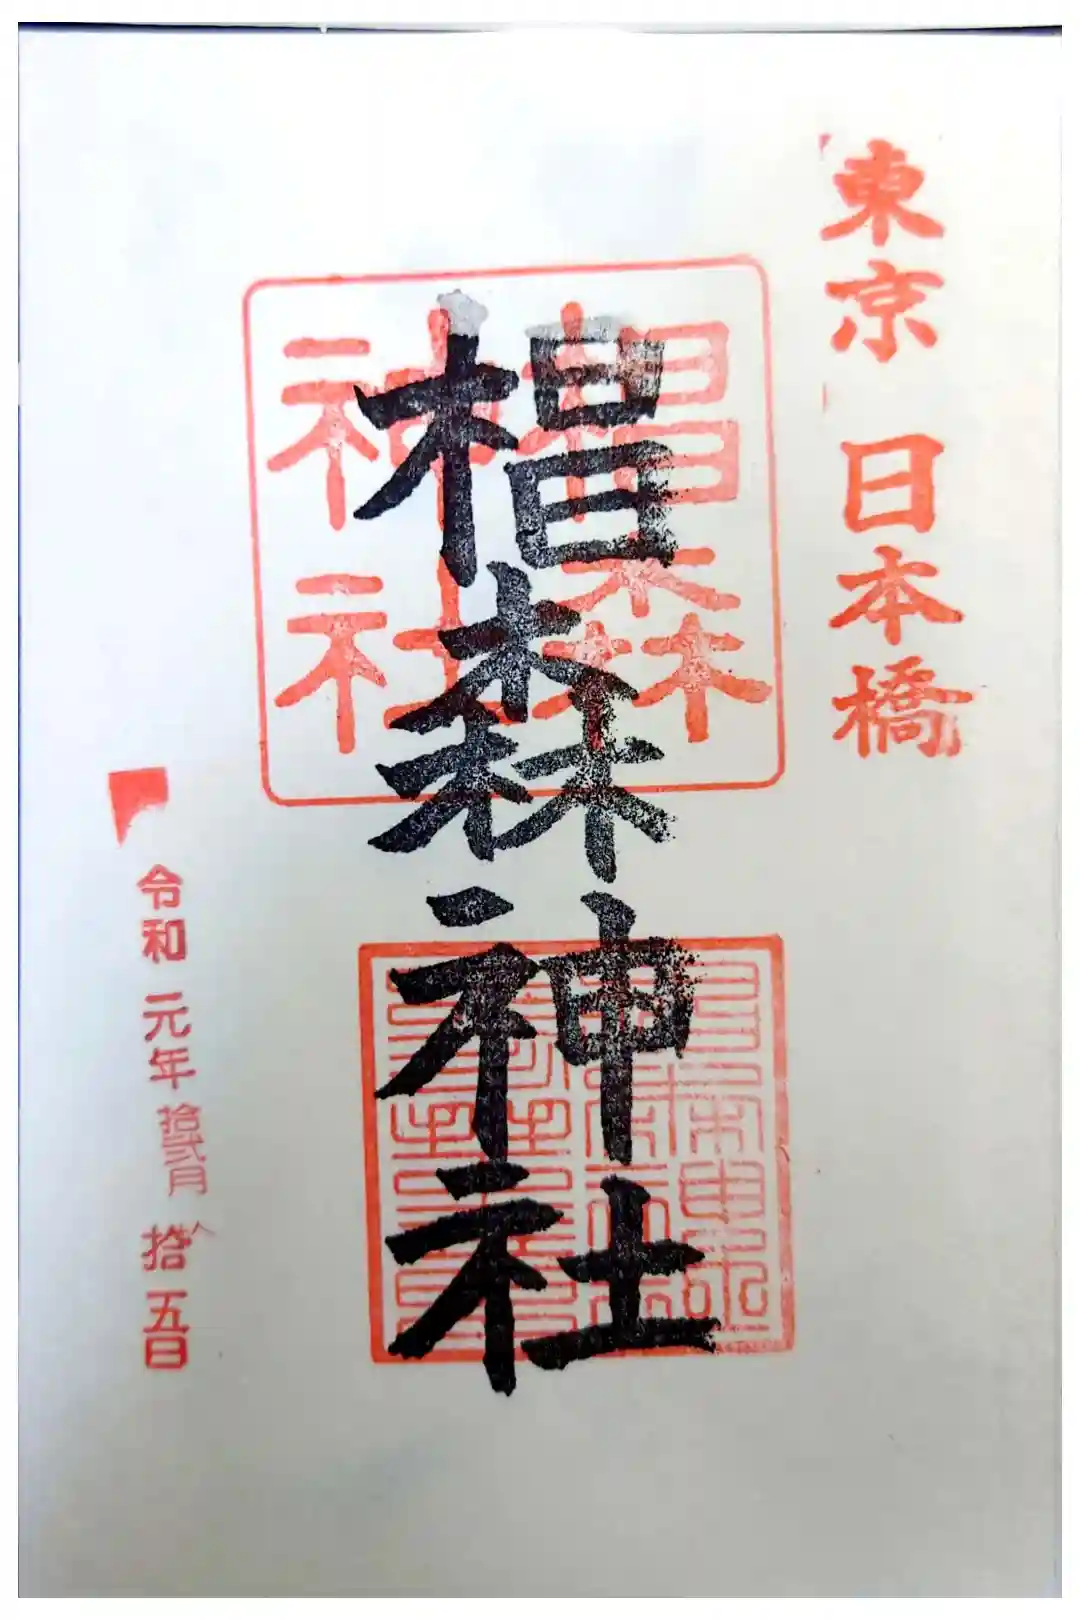 東京 日本橋
椙森神社
椙森
神社
令和 元年 拾弐月 拾五日